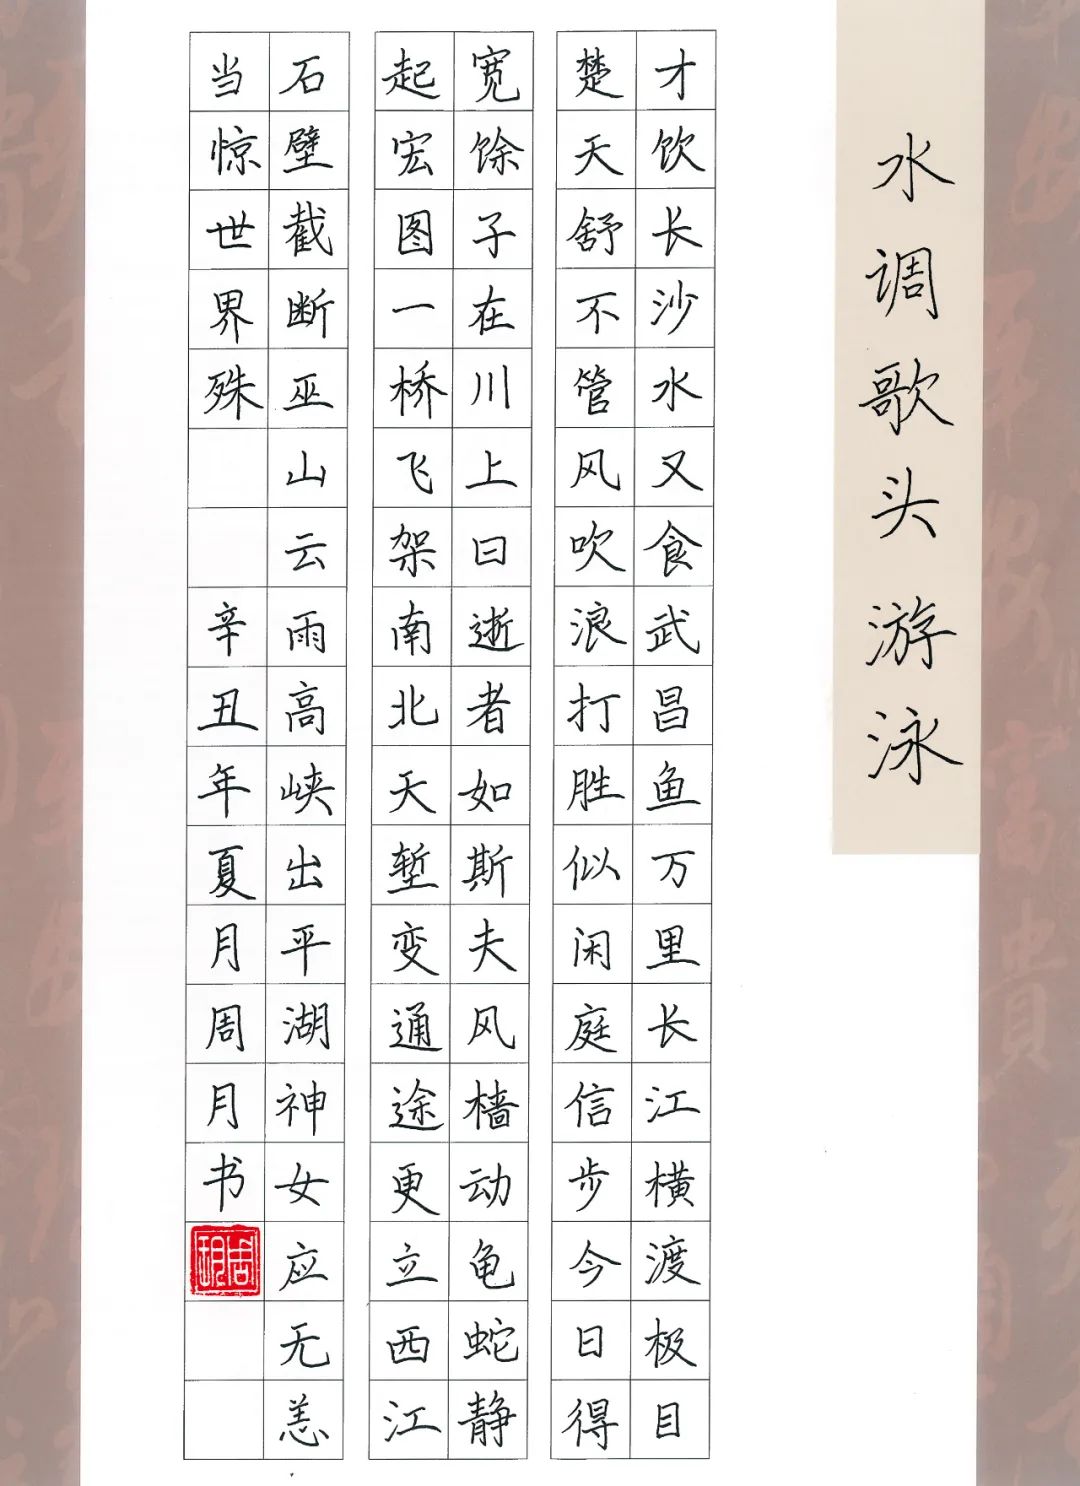 水调歌头 游泳
才饮长沙水又食武昌鱼万里长江横渡极目
楚天舒不管风吹浪打胜似闲庭信步今日得
宽馀子在川上曰逝者如斯夫风樯动龟蛇静
起宏图一桥飞架南北天堑变通途更立西江
石壁截断巫山云雨高峡出平湖神女应无恙
当惊世界殊 辛丑年夏月周月书